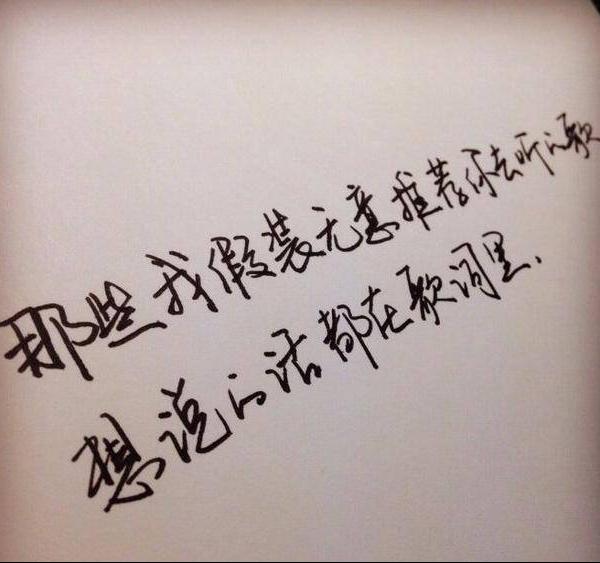 那些我假装无意推荐你去听的歌
想说的话都在歌词里.